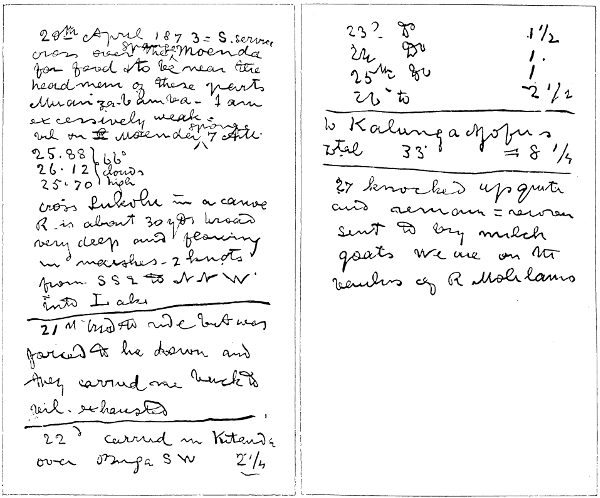 20th April 1873 = S. service
cross over the sponge Moenda
for food & to be near the
headmen of these parts
Muanzabamba - I am
excessively weak =
vil on Moenda sponge 7 A.M.
25.88
26.12
25.70
66°
clouds
high
cross Lukolu in a canoe
R. is about 30 yds broad
very deep and flowing
in marshes - 2 knots
from SSE to NNW
into Lake
21st tried to ride but was
forced to lie down and
they carried me back to
vil. exhausted
22d carried in Kitanda
over Buga SW 2 1/4
23d Do 1 1/2
24 Do 1.
25th Do 1
26 to 2 1/2
to Kalunganjofu's
total 33 = 8 1/4
27 knocked up quite
and remain = recover
sent to buy milch
goats We are on the
banks of R Molilamo